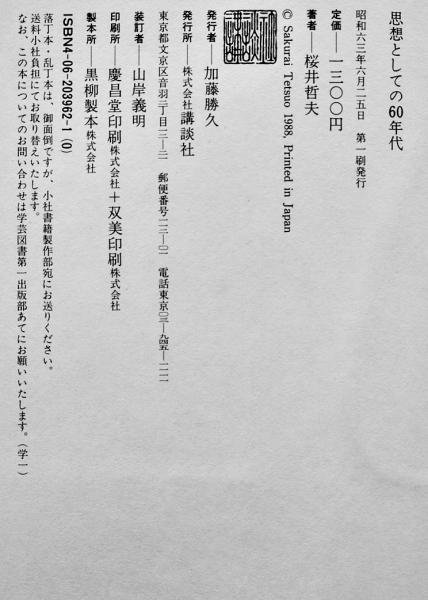 思想としての60年代
昭和六三年六月二五日　第一刷発行
定価──一三〇〇円
著者──桜井哲夫
© Sakurai Tetsuo 1988, Printed in Japan
発行者──加藤勝久
発行所──株式会社講談社
東京都文京区音羽二丁目一二─二一　郵便番号一一二─〇一　電話東京〇三─九四五─一一一一
装訂者──山岸義明
印刷所──慶昌堂印刷株式会社＋双美印刷株式会社
製本所──黒柳製本株式会社
ISBN4-06-203962-1 (0)
落丁本・乱丁本は、御面倒ですが、小社書籍製作部宛にお送りください。
送料小社負担にてお取り替えいたします。
なお、この本についてのお問い合わせは学芸図書第一出版部あてにお願いいたします。（学一）